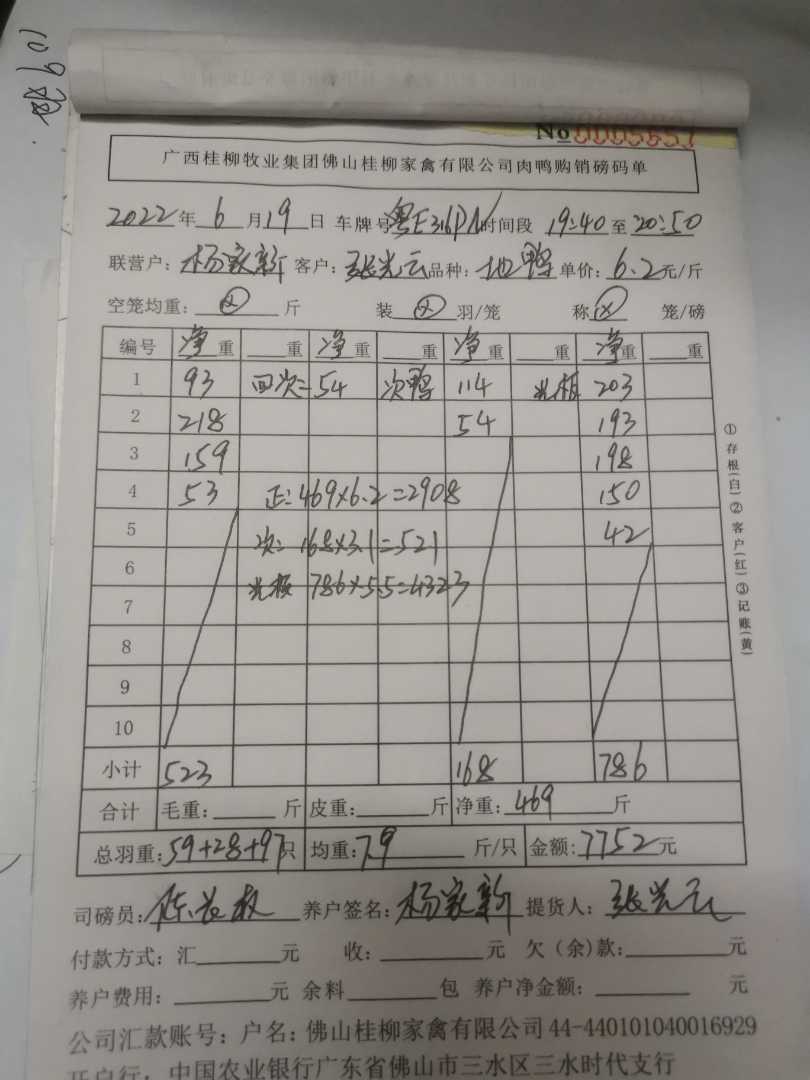 109
No 0005657
广西桂柳牧业集团佛山桂柳家禽有限公司肉鸭购销磅码单
2022年6月19日 车牌号粤E316PN时间段 19:40至20:50
联营户:杨家新 客户:张光云 品种:地鸭 单价:6.2元/斤
空笼均重: 斤 装 羽/笼 称 笼/磅
编号 净重 重 净重 重 净重 重 净重 重
1 93 回次= 54 次鸭 114 光板 203
2 218 54 193
3 159 198
4 53 正:469×6.2=2908 150
5 次:168×3.1=521 42
6 光板 786×5.5=4323
7
8
9
10
小计 523 168 786
合计 毛重: 斤 皮重: 斤 净重:469斤
总羽重:59+28+97只 均重:7.9斤/只 金额:7752元
司磅员: 养户签名:杨家新 提货人:张光云
付款方式:汇 元 收: 元 欠(余)款: 元
养户费用: 元 余料 包 养户净金额: 元
公司汇款账号:户名:佛山桂柳家禽有限公司44-440101040016929
开户行:中国农业银行广东省佛山市三水区三水时代支行
①存根(白)②客户(红)③记账(黄)